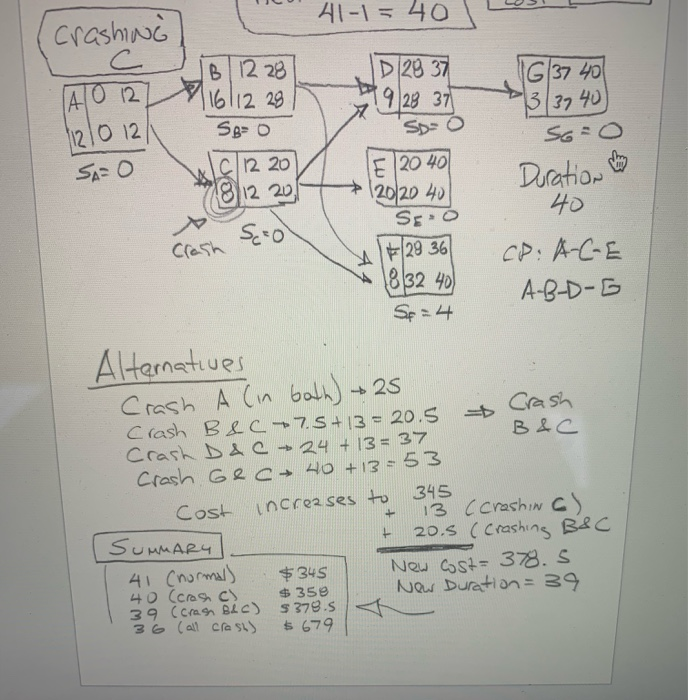 41-1 = 40
Crashing
C
A 0 12
12 0 12
SA = 0
B 12 28
16 12 28
SB = 0
C 12 20
8 12 20
SC = 0
Crash
D 28 37
9 28 37
SD = 0
E 20 40
20 20 40
SE = 0
F 28 36
8 32 40
SF = 4
G 37 40
3 37 40
SG = 0
Duration
40
CP: A-C-E
A-B-D-G
Alternatives
Crash A (in both) → 25
Crash B & C → 7.5 + 13 = 20.5 ⇒ Crash B & C
Crash D & C → 24 + 13 = 37
Crash G & C → 40 + 13 = 53
Cost increases to 345
+ 13 (crashin C)
+ 20.5 (Crashing B&C
New Cost = 378.5
New Duration = 39
SUMMARY
41 (normal) $345
40 (crash C) $358
39 (crash B&C) $378.5
36 (all crash) $679